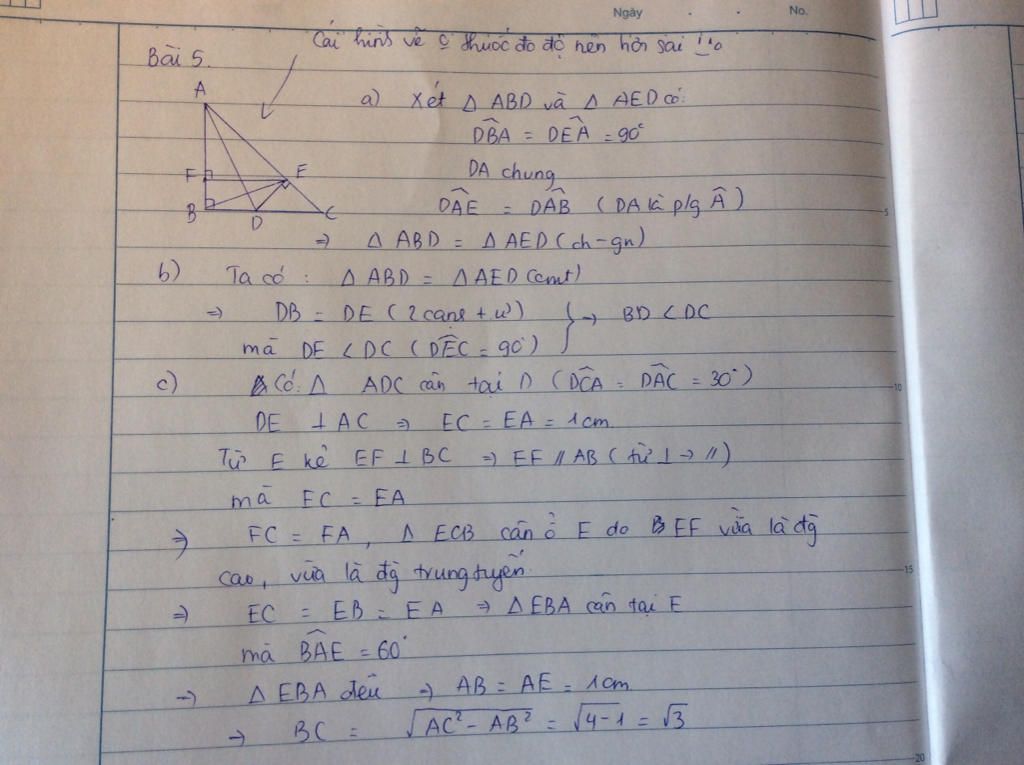 Ngày . . No.
Cái hình vẽ ko thước đo độ nên hơi sai
Bài 5.
A
F
E
B
D
C
a) Xét △ ABD và △ AED có:
DBA = DEA = 90°
DA chung
DAE = DAB (DA là p/g Â)
⇒ △ ABD = △ AED (ch-gn)
b) Ta có: △ ABD = △ AED (cmt)
⇒ DB = DE (2 cạnh + ư) } → BD < DC
mà DE < DC (DEC = 90°)
c) Có: △ ADC cân tại D (DCA = DAC = 30°)
DE ⊥ AC ⇒ EC = EA = 1cm
Từ E kẻ EF ⊥ BC ⇒ EF // AB (từ ⊥ → //)
mà EC = EA
⇒ FC = FA, △ ECB cân ở E do EF vừa là đg
cao, vừa là đg trung tuyến.
⇒ EC = EB = EA ⇒ △ EBA cân tại E
mà BAE = 60°
→ △ EBA đều ⇒ AB = AE = 1cm
→ BC = √AC² - AB² = √4-1 = √3
5
10
15
20